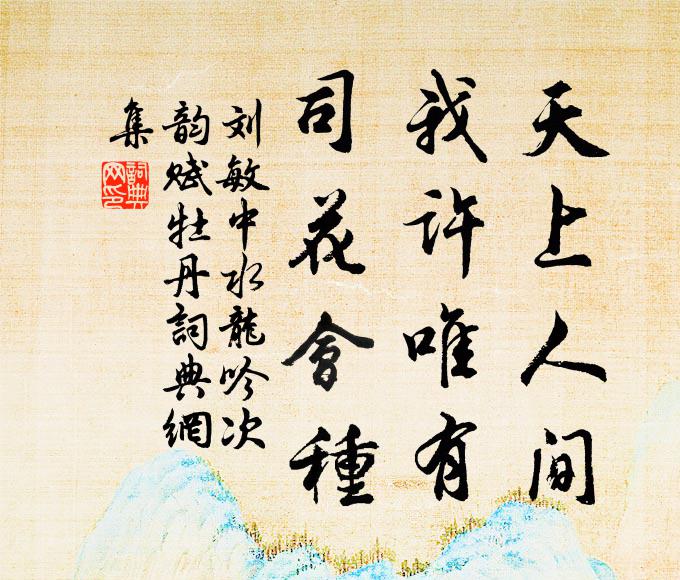 天上人间
我许唯有
司花會種
刘敏中水龍吟次
韵赋牡丹詞典網
集
詞典
网印